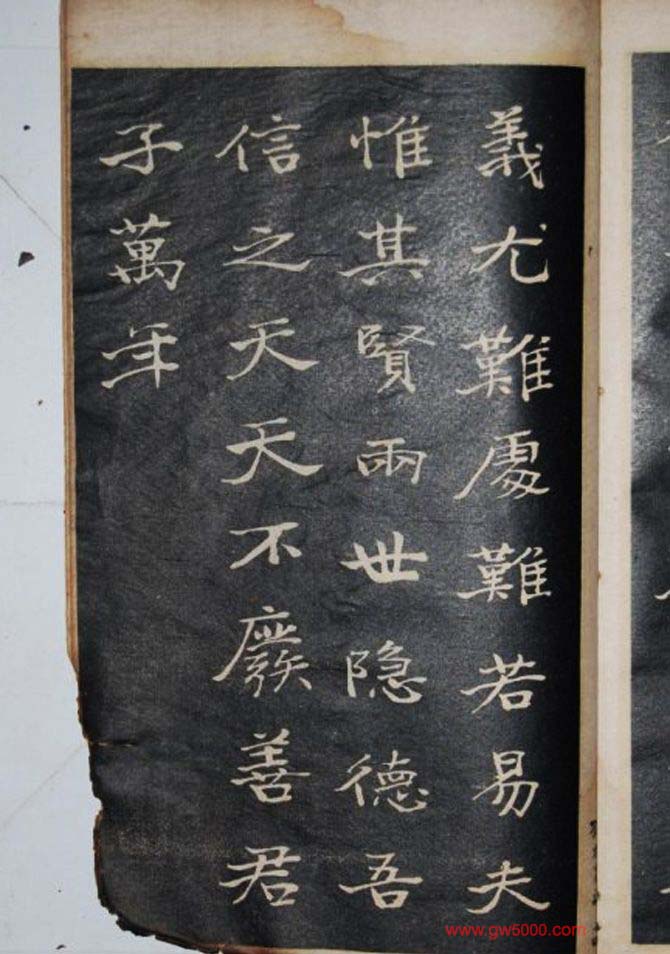 義尤難處難若易夫
惟其賢兩世隐德吾
信之天天不廢善君
子萬年
www.gw5000.com